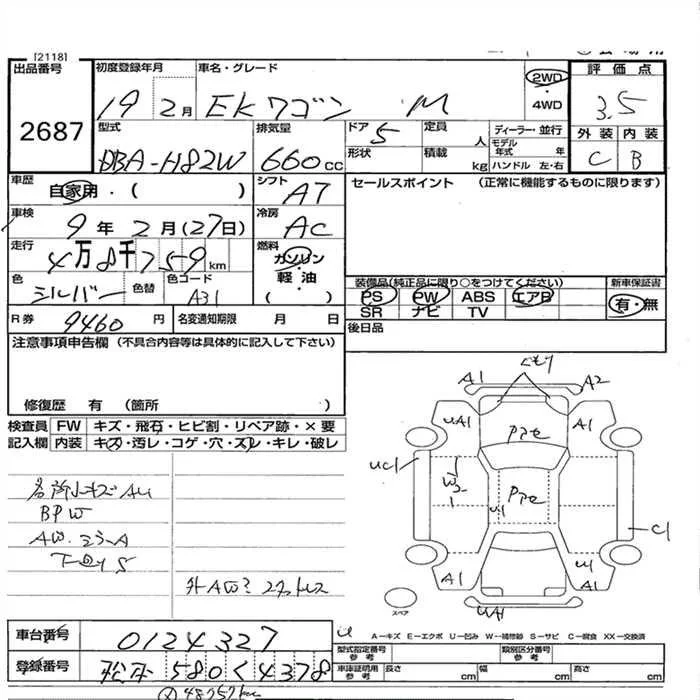 [2118]
出品番号 初度登録年月 車名・グレード 2WD 評価点
2687 19 2月 EKワゴン M ・ 4WD 3.5
型式 排気量 ドア 5 定員 人 ディーラー・並行 外装 内装
DBA-H82W 660cc 形状 積載 kg モデル年式 年 ハンドル 左・右 C B
車歴 自家用・( ) シフト AT セールスポイント (正常に機能するものに限ります)
車検 9年 2月(27日) 冷房 AC
走行 4万8千759km 燃料 ガソリン・軽油
色 シルバー 色替 色コード A31 ( )
装備品(純正品に限り○をつけてください) 新車保証書
PS PW ABS エアB 有・無
SR ナビ TV
R券 9460円 名変通知期限 月 日 後日品
注意事項申告欄(不具合内容等は具体的に記入して下さい)
修復歴 有(箇所 )
検査員 FW キズ・飛石・ヒビ割・リペア跡・×要
記入欄 内装 キズ・汚レ・コゲ・穴・ズレ・キレ・破レ
BPW
A1 A2
UA1 A1
UC1 W2
C1
A1 A1
UA1
スペア
A-キズ E-エクボ U-凹み W-補修跡 S-サビ C-腐食 XX-交換済
車台番号 0124327 型式指定番号 参考 類別区分番号 参考
登録番号 松本 580 く 4378 車庫証明用 参考 長さ cm 幅 cm 高さ cm